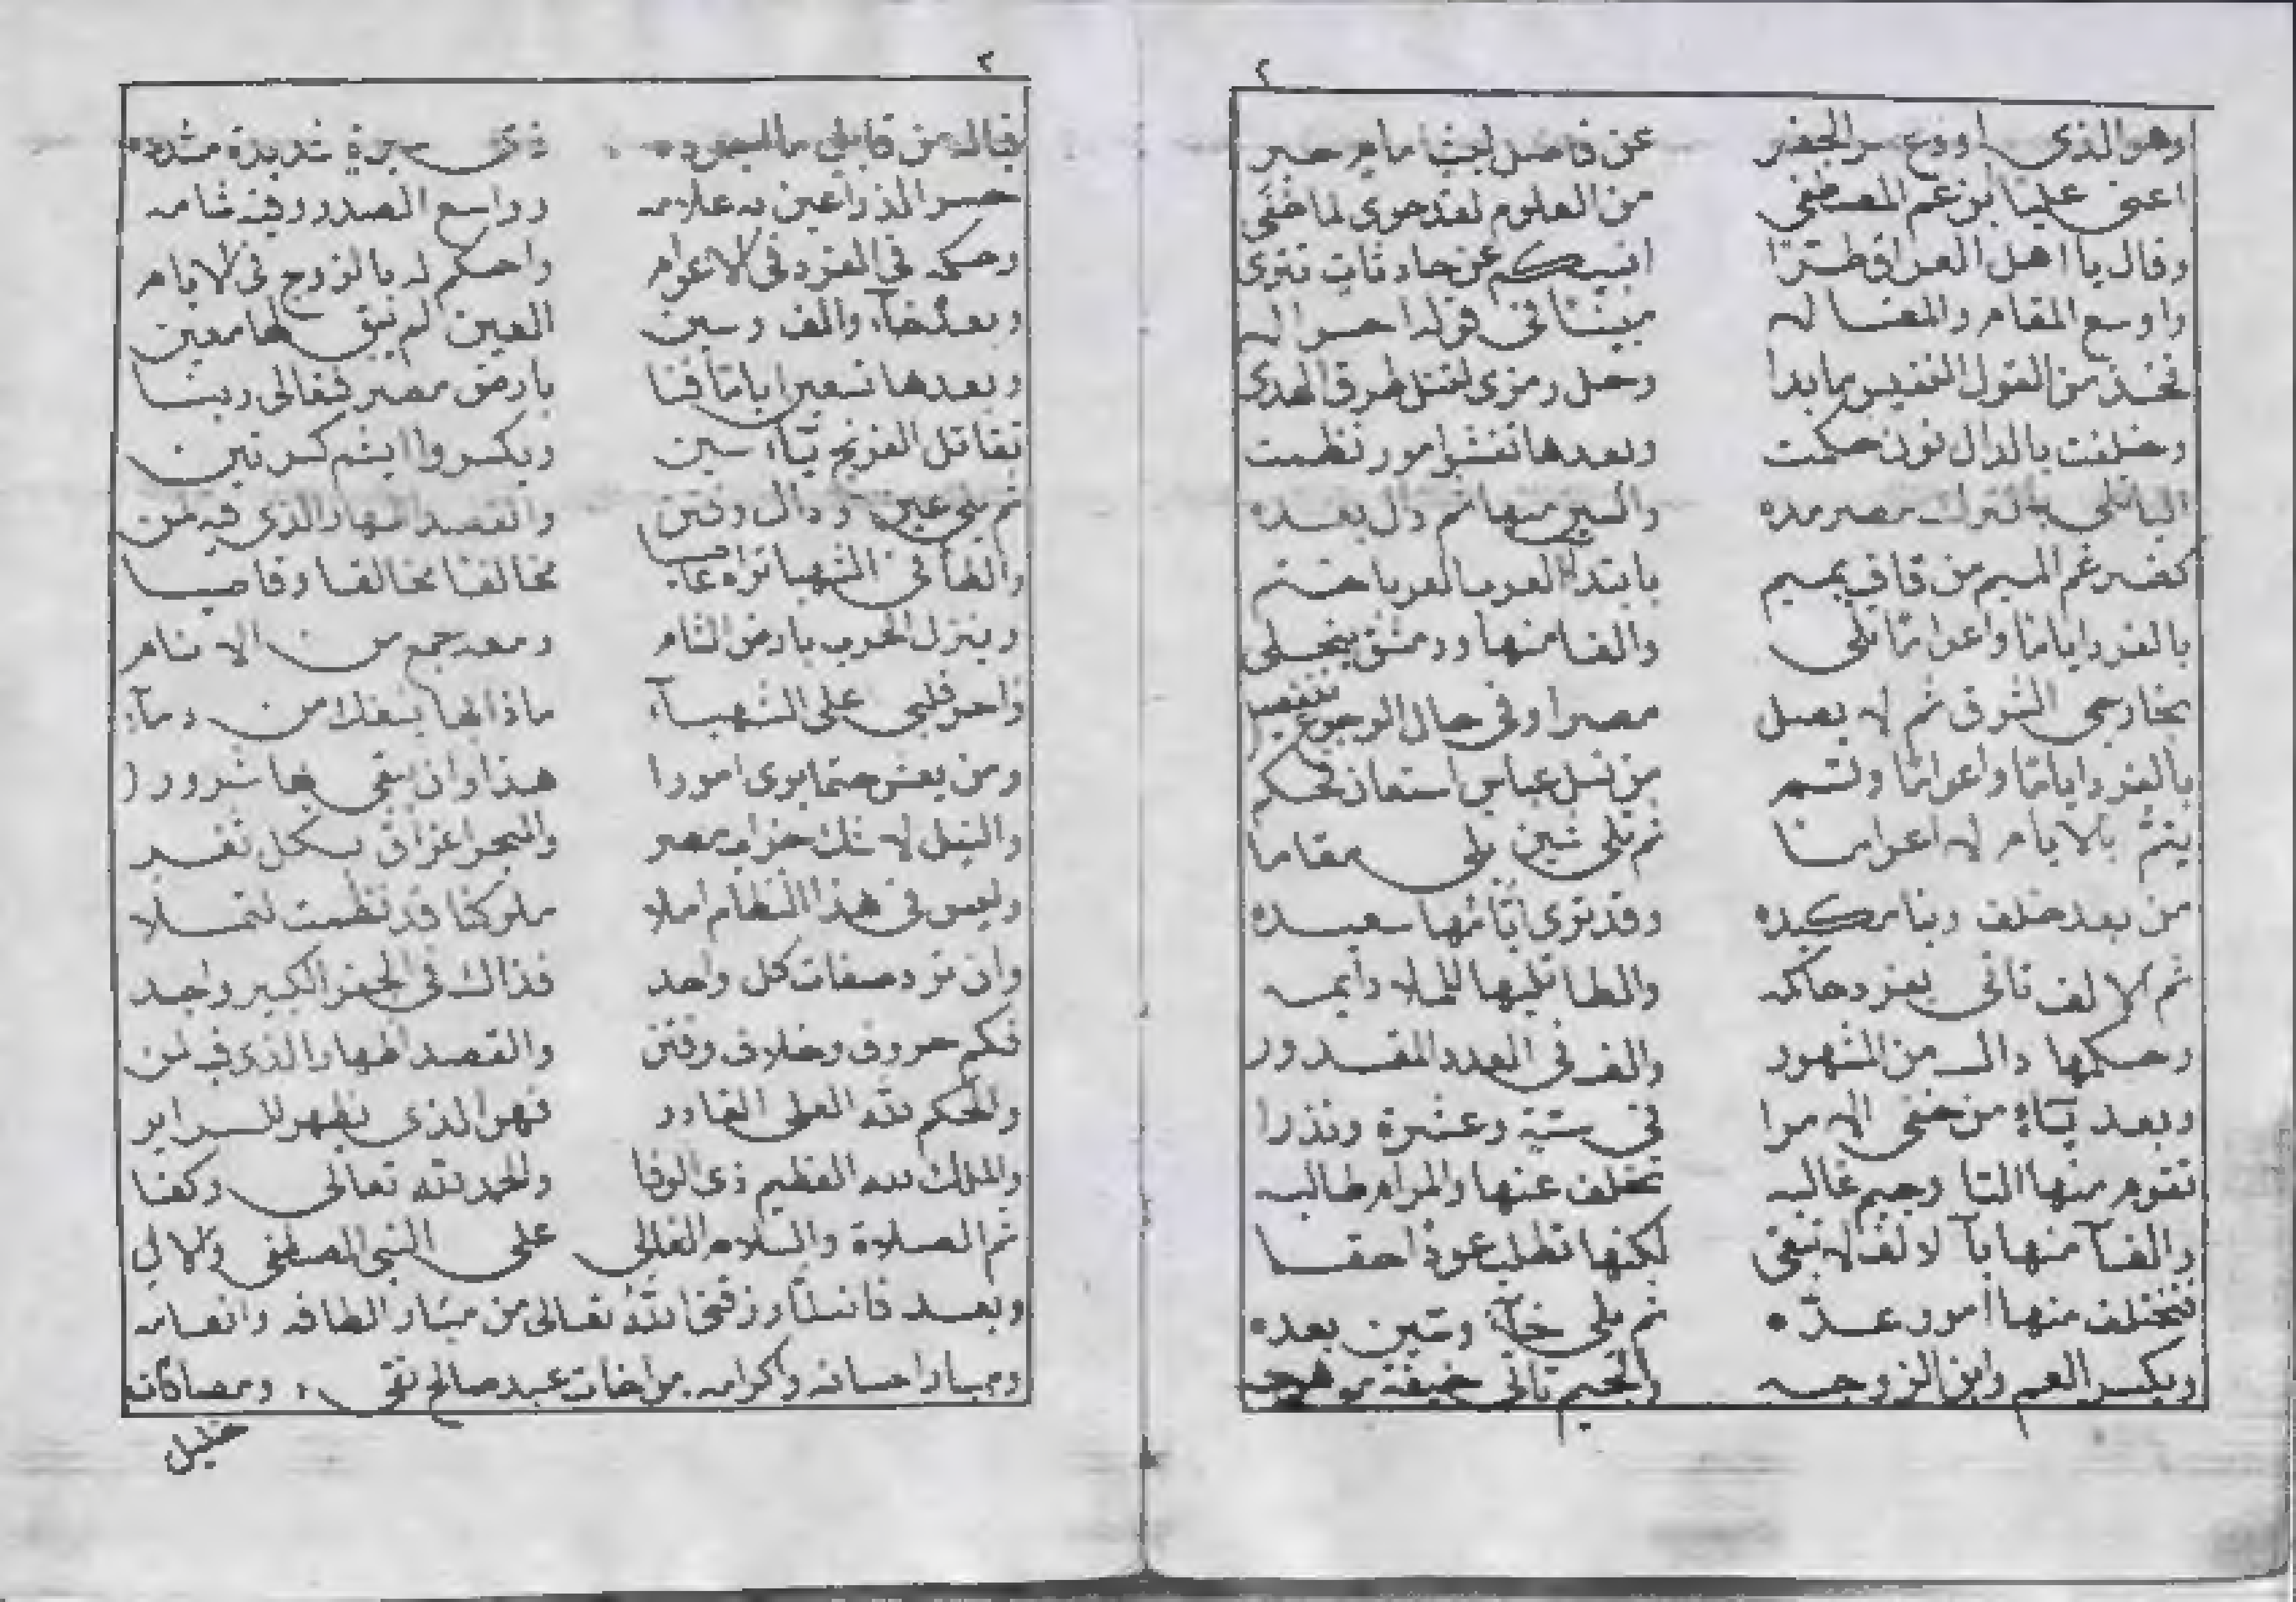 ٢
وهو الذي اودع سر الجفر عن فاضل ليث امام حبر
اعنى عليا بن عم المصطفى من العلوم لقد حوى لما خفى
وقال يا اهل العراق طرا انبيكم عن حادثات تترى
واوسع المقام والمقاله مبينا في قوله احواله
فخذ من القول النفيس ما بدا وحل رمزى لتنل طرق الهدى
وخلفت بالدال نون حكمت وبعدها تفشو امور نظمت
الباتلي بالترك مصر مده والسين منها ثم دال بعده
عم الميم من قاف بميم بابتدا
بالفرد اياما واعواما تلى والفا منها ودمشق ينجلى
بخارجي الشرق ثم لا يصل مصرا وفى حال الرجوع
بالفرد اياما واعواما ولتم من نسل عباس استعان تحكم
يتم بالايام لا اعواما ثم تلى شين تلى مقاما
من بعد خلف وبنا مركبده وقد ترى ايامها سعيده
ثم الالف تاتى بفرد حاكمه والطا تليها للملا دايمه
وحكمها دال من المشهور والف فى العدد المقدور
وبعد باء من خفى الامرا فى ستة وعشرة ونذرا
تقوم منها التا وجيم غالبه تخلف عنها والمرام طالبه
والفا منها با لالف لا تبقى لكنها تطلب عونا حقا
فتختلف منها امور عدّه ثم تلى خآء وسين بعده
ويكسر العم وابن الزوجه والجيم تاتى خيفة موهوجه
٣
من قابلى ذى شديدة
حسر الذراعين به علامه وواسع الصدر وفيه شامه
وحكمه فى الفرد فى الاعوام واحكم له بالزوج فى الايام
وبعد خآء والف وسين العين لم تبق لها معين
وبعدها تسعين اياما فنا بارض مصر فتعالى ربنا
تقاتل الفرنج تآء سين ويكسروا ايشم كسرتين
ثم تجى عين ودال وفتن والقصد اظهار الذى فيه لمن
والفا فى الشهبا تراه مخالفا مخالفا وقاصيا
وينزل الحرب بارض الشام ومعه جمع من الانام
واحر قلبى على الشهبآء ماذا لها يسفك من دمآء
ومن يعش حتما يرى امورا هذا وان يبقى بها شرورا
والنيل لا شك خراب مصر والبحر اغراق بكل ثغر
وليس فى هذا النظام املا ملوكنا قد نظمت لتمـلا
وان ترد صفات كل واحد فذاك فى الجفر الكبير واجد
فكم حروف وخلاف وفتن والقصد اظهار الذى فيه لمن
والحكم لله العلى القادر فهو الذى يظهر للسراير
والملك لله العظيم ذى الوفا والحمد لله تعالى وكفا
ثم الصلاة والسلام الغالى على النبى المصطفى والال
وبعد فانما رزقنى الله تعالى من مبار الطافه وانعامه
ومبار احسانه واكرامه مواخات عبد صالح تقى ومصافات
خليل